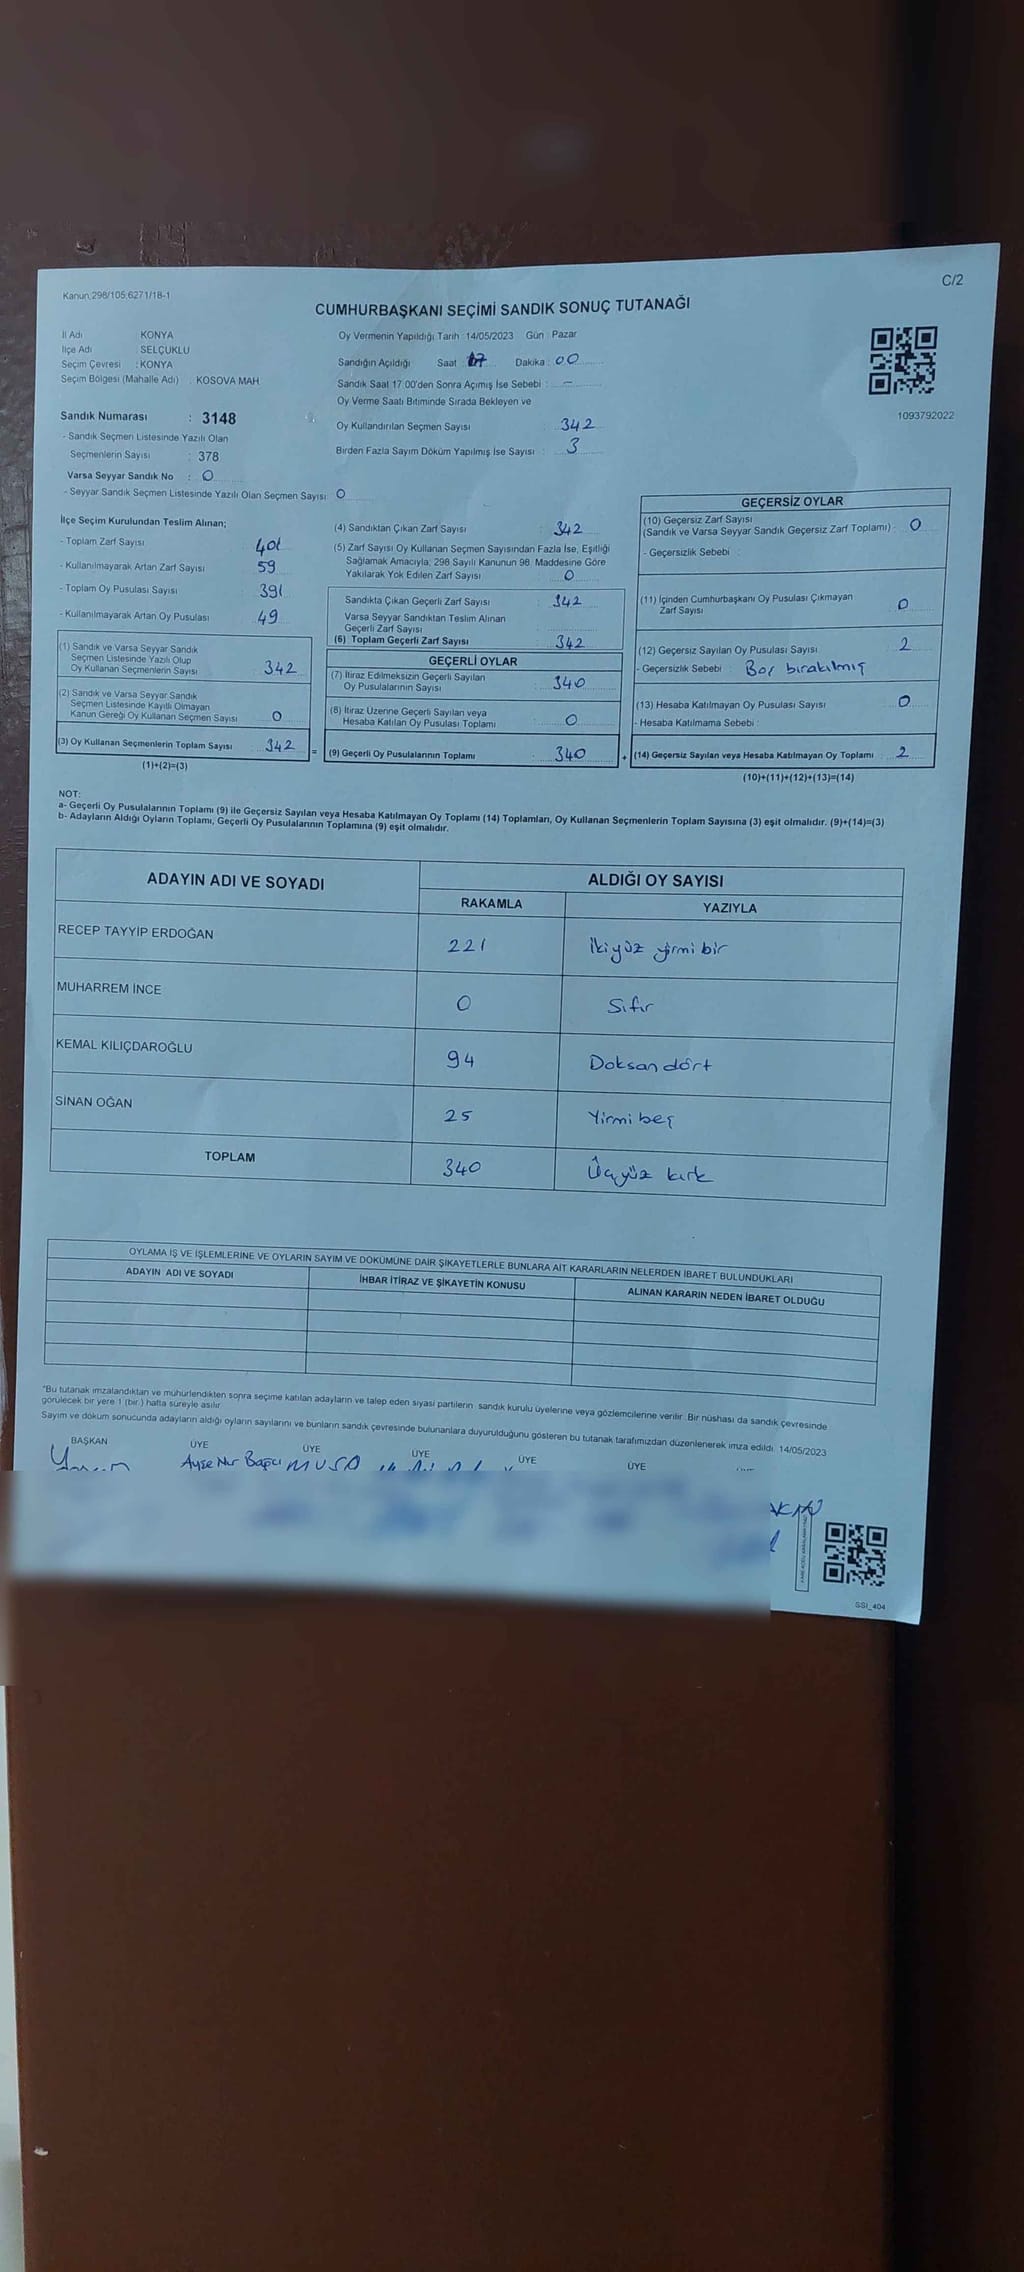 C/2
Kanun:298/105 6271/18-1
CUMHURBAŞKANI SEÇİMİ SANDIK SONUÇ TUTANAĞI
İl Adı : KONYA
İlçe Adı : SELÇUKLU
Seçim Çevresi : KONYA
Seçim Bölgesi (Mahalle Adı) : KOSOVA MAH
Sandık Numarası : 3148
- Sandık Seçmen Listesinde Yazılı Olan
Seçmenlerin Sayısı : 378
Varsa Seyyar Sandık No : 0
- Seyyar Sandık Seçmen Listesinde Yazılı Olan Seçmen Sayısı 0
Oy Vermenin Yapıldığı Tarih 14/05/2023 Gün : Pazar
Sandığın Açıldığı Saat 17 Dakika : 00
Sandık Saat 17:00'den Sonra Açımış İse Sebebi : -
Oy Verme Saati Bitiminde Sırada Bekleyen ve
Oy Kullandırılan Seçmen Sayısı : 342
Birden Fazla Sayım Döküm Yapılmış İse Sayısı : 3
1093792022
İlçe Seçim Kurulundan Teslim Alınan;
- Toplam Zarf Sayısı 401
- Kullanılmayarak Artan Zarf Sayısı 59
- Toplam Oy Pusulası Sayısı 391
- Kullanılmayarak Artan Oy Pusulası 49
(1) Sandık ve Varsa Seyyar Sandık
Seçmen Listesinde Yazılı Olup
Oy Kullanan Seçmenlerin Sayısı 342
(2) Sandık ve Varsa Seyyar Sandık
Seçmen Listesinde Kayıtlı Olmayan
Kanun Gereği Oy Kullanan Seçmen Sayısı 0
(3) Oy Kullanan Seçmenlerin Toplam Sayısı 342 =
(1)+(2)=(3)
(4) Sandıktan Çıkan Zarf Sayısı : 342
(5) Zarf Sayısı Oy Kullanan Seçmen Sayısından Fazla İse, Eşitliği
Sağlamak Amacıyla; 298 Sayılı Kanunun 98. Maddesine Göre
Yakılarak Yok Edilen Zarf Sayısı : 0
Sandıkta Çıkan Geçerli Zarf Sayısı : 342
Varsa Seyyar Sandıktan Teslim Alınan
Geçerli Zarf Sayısı
(6) Toplam Geçerli Zarf Sayısı : 342
GEÇERLİ OYLAR
(7) İtiraz Edilmeksizin Geçerli Sayılan
Oy Pusulalarının Sayısı : 340
(8) İtiraz Üzerine Geçerli Sayılan veya
Hesaba Katılan Oy Pusulası Toplamı : 0
(9) Geçerli Oy Pusulalarının Toplamı : 340 +
GEÇERSİZ OYLAR
(10) Geçersiz Zarf Sayısı
(Sandık ve Varsa Seyyar Sandık Geçersiz Zarf Toplamı) : 0
- Geçersizlik Sebebi :
(11) İçinden Cumhurbaşkanı Oy Pusulası Çıkmayan
Zarf Sayısı : 0
(12) Geçersiz Sayılan Oy Pusulası Sayısı : 2
- Geçersizlik Sebebi : Boş bırakılmış
(13) Hesaba Katılmayan Oy Pusulası Sayısı : 0
- Hesaba Katılmama Sebebi :
(14) Geçersiz Sayılan veya Hesaba Katılmayan Oy Toplamı : 2
(10)+(11)+(12)+(13)=(14)
NOT:
a- Geçerli Oy Pusulalarının Toplamı (9) ile Geçersiz Sayılan veya Hesaba Katılmayan Oy Toplamı (14) Toplamları, Oy Kullanan Seçmenlerin Toplam Sayısına (3) eşit olmalıdır. (9)+(14)=(3)
b- Adayların Aldığı Oyların Toplamı, Geçerli Oy Pusulalarının Toplamına (9) eşit olmalıdır.
ADAYIN ADI VE SOYADI ALDIĞI OY SAYISI
RAKAMLA YAZIYLA
RECEP TAYYİP ERDOĞAN 221 İkiyüz yirmi bir
MUHARREM İNCE 0 Sıfır
KEMAL KILIÇDAROĞLU 94 Doksan dört
SİNAN OĞAN 25 Yirmi beş
TOPLAM 340 Üçyüz kırk
OYLAMA İŞ VE İŞLEMLERİNE VE OYLARIN SAYIM VE DÖKÜMÜNE DAİR ŞİKAYETLERLE BUNLARA AİT KARARLARIN NELERDEN İBARET BULUNDUKLARI
ADAYIN ADI VE SOYADI İHBAR İTİRAZ VE ŞİKAYETİN KONUSU ALINAN KARARIN NEDEN İBARET OLDUĞU
*Bu tutanak imzalandıktan ve mühürlendikten sonra seçime katılan adayların ve talep eden siyasi partilerin sandık kurulu üyelerine veya gözlemcilerine verilir. Bir nüshası da sandık çevresinde
görülecek bir yere 1 (bir) hafta süreyle asılır.
Sayım ve döküm sonucunda adayların aldığı oyların sayılarını ve bunların sandık çevresinde bulunanlara duyurulduğunu gösteren bu tutanak tarafımızdan düzenlenerek imza edildi. 14/05/2023
BAŞKAN ÜYE ÜYE ÜYE ÜYE ÜYE
Ayşe Nur Bağcı MUSA
SSI_404